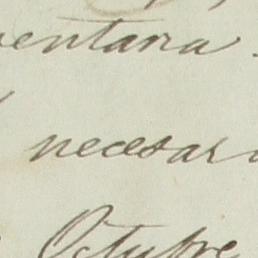 entaria
necesari
Octubre